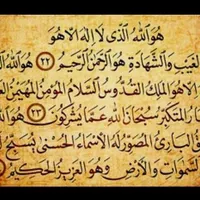 هُوَ اللهُ الَّذِي لَا إِلَهَ إِلَّا هُوَ
الْغَيْبِ وَالشَّهَادَةِ هُوَ الرَّحْمَنُ الرَّحِيمُ ٢٢ هُوَ اللهُ
هُوَ الْمَلِكُ الْقُدُّوسُ السَّلَامُ الْمُؤْمِنُ الْمُهَيْمِنُ
الْمُتَكَبِّرُ سُبْحَانَ اللهِ عَمَّا يُشْرِكُونَ ٢٣ هُوَ
الْبَارِئُ الْمُصَوِّرُ لَهُ الْأَسْمَاءُ الْحُسْنَى يُسَبِّحُ
السَّمَوَاتِ وَالْأَرْضِ وَهُوَ الْعَزِيزُ الْحَكِيمُ